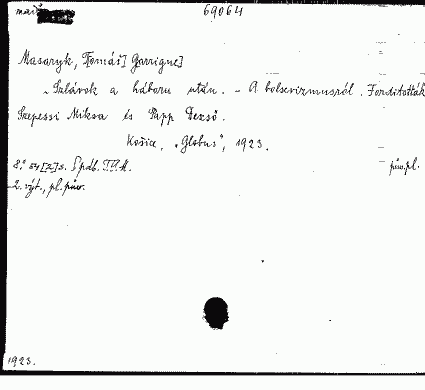 maď. 69064
Masaryk, T[omáš] Garrigue]
„Szlávok a háboru után. – A bolsevizmusról. Fordították
Szepessi Miksa és Papp Dezső.
Košice, „Globus", 1923.
8.° 54[2]s. pdb. T.G.M. pův. pl.
2. výt., pl. pův.
1923.